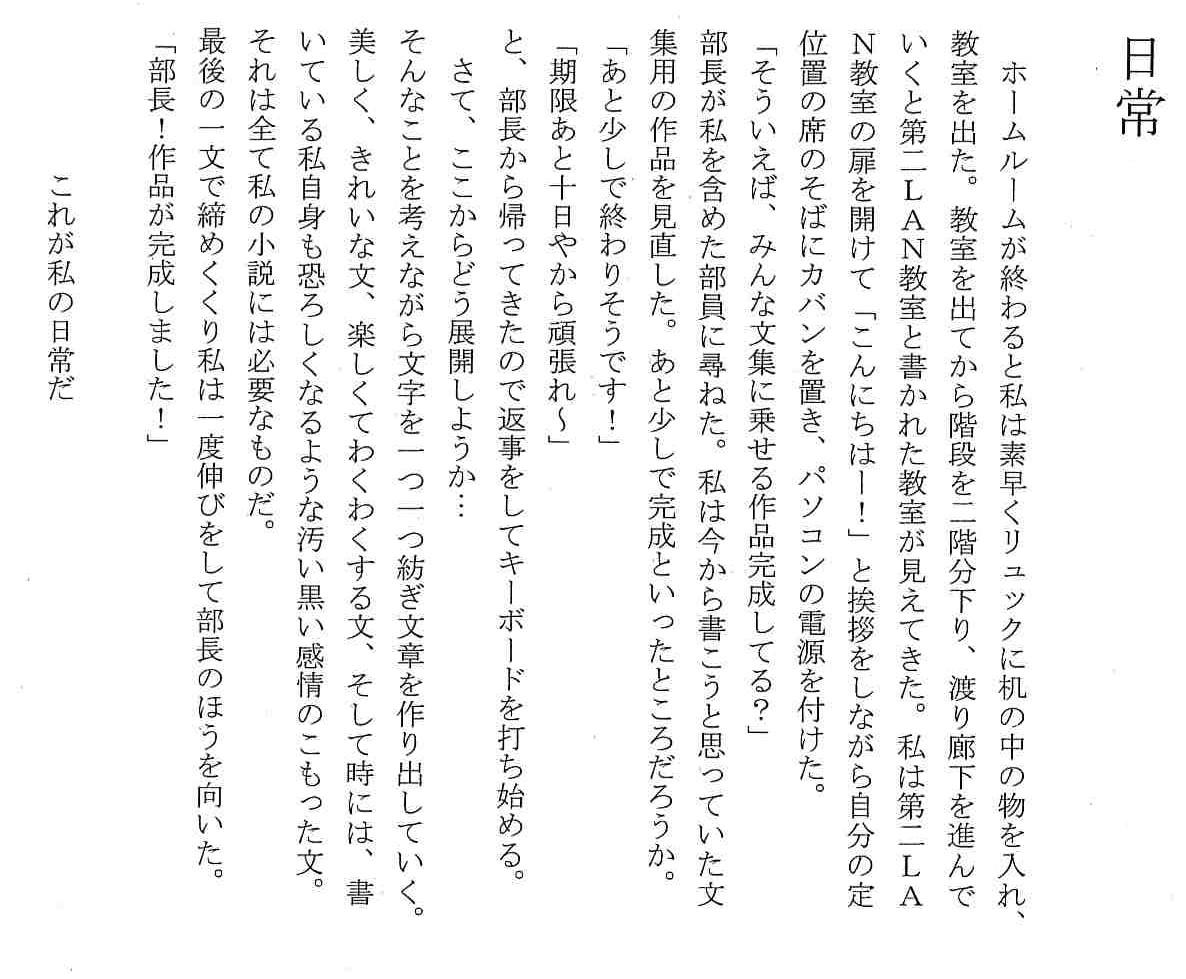 日常
ホームルームが終わると私は素早くリュックに机の中の物を入れ、
教室を出た。教室を出てから階段を二階分下り、渡り廊下を進んで
いくと第二ＬＡＮ教室と書かれた教室が見えてきた。私は第二ＬＡ
Ｎ教室の扉を開けて「こんにちはー！」と挨拶をしながら自分の定
位置の席のそばにカバンを置き、パソコンの電源を付けた。
「そういえば、みんな文集に乗せる作品完成してる？」
部長が私を含めた部員に尋ねた。私は今から書こうと思っていた文
集用の作品を見直した。あと少しで完成といったところだろうか。
「あと少しで終わりそうです！」
「期限あと十日やから頑張れ～」
と、部長から帰ってきたので返事をしてキーボードを打ち始める。
さて、ここからどう展開しようか…
そんなことを考えながら文字を一つ一つ紡ぎ文章を作り出していく。
美しく、きれいな文、楽しくてわくわくする文、そして時には、書
いている私自身も恐ろしくなるような汚い黒い感情のこもった文。
それは全て私の小説には必要なものだ。
最後の一文で締めくくり私は一度伸びをして部長のほうを向いた。
「部長！作品が完成しました！」
これが私の日常だ